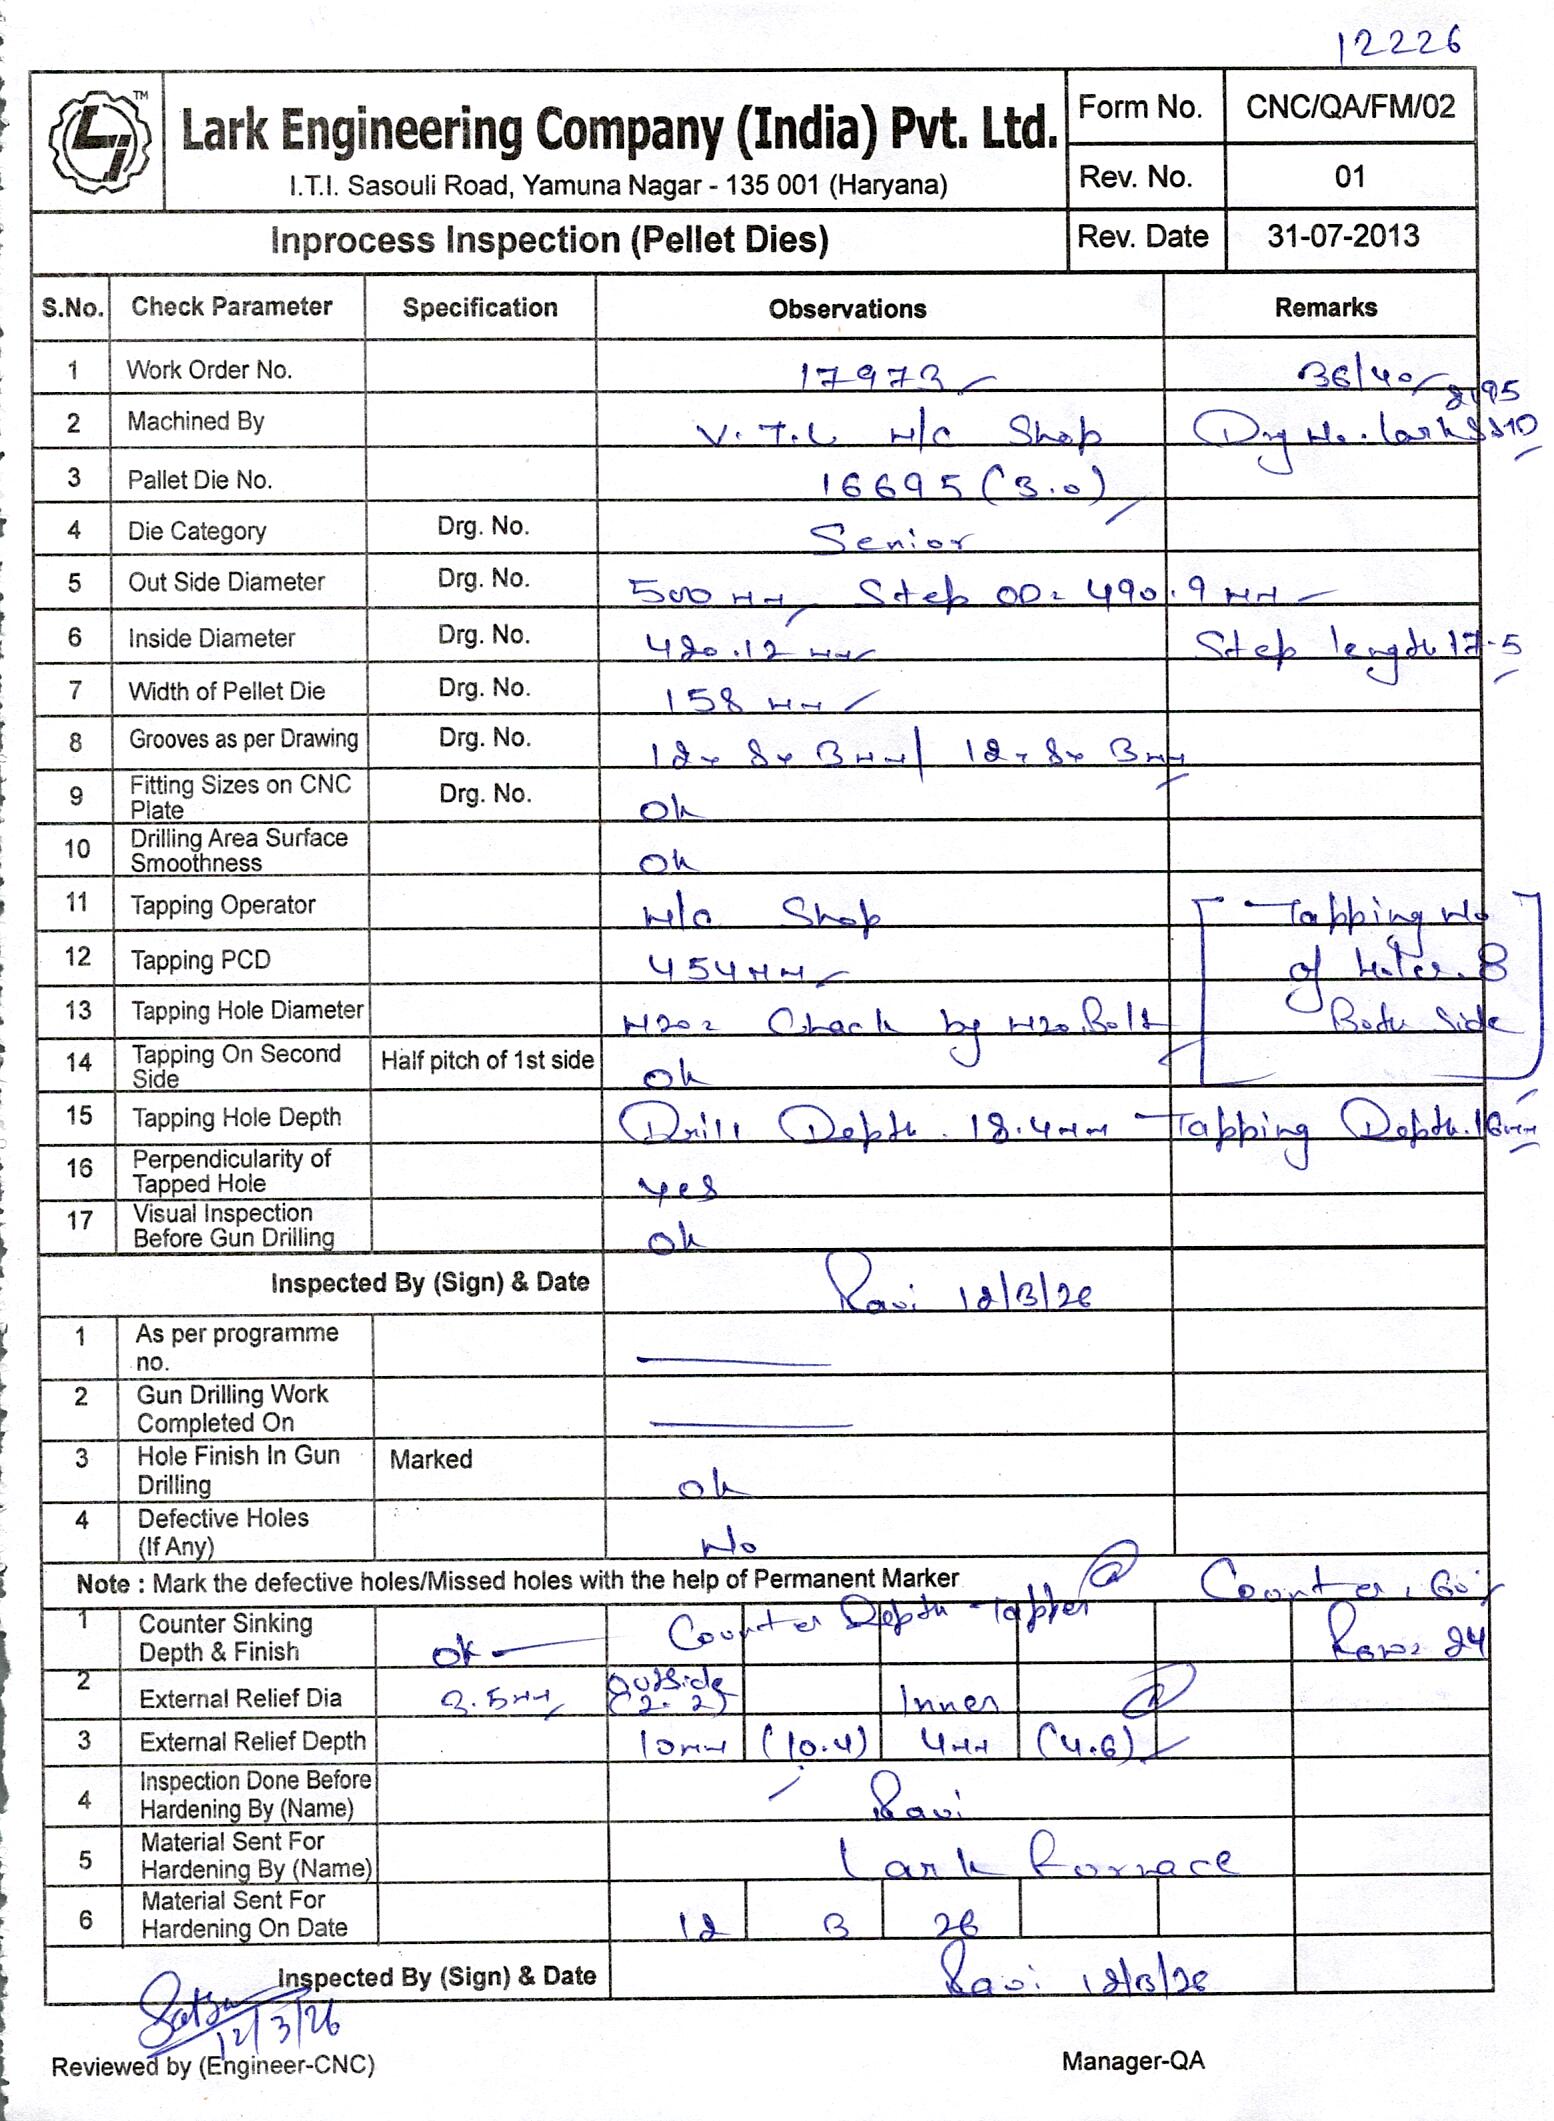 12226
Lark Engineering Company (India) Pvt. Ltd.
I.T.I. Sasouli Road, Yamuna Nagar - 135 001 (Haryana)
Form No. CNC/QA/FM/02
Rev. No. 01
Inprocess Inspection (Pellet Dies)
Rev. Date 31-07-2013
S.No. Check Parameter Specification Observations Remarks
1 Work Order No. 17973 36/40
2 Machined By V.T.L M/C Shop Drg No. Lark
3 Pallet Die No. 16695 (3.0)
4 Die Category Drg. No. Senior
5 Out Side Diameter Drg. No. 500 MM Step OD= 490.9 MM
6 Inside Diameter Drg. No. 420.12 MM Step length 17.5
7 Width of Pellet Die Drg. No. 158 MM
8 Grooves as per Drawing Drg. No. 12x 8x 3MM/ 12x 8x 3MM
9 Fitting Sizes on CNC Plate Drg. No. Ok
10 Drilling Area Surface Smoothness Ok
11 Tapping Operator M/C Shop Tapping No
12 Tapping PCD 454MM of Holes. 8
13 Tapping Hole Diameter M20= Chack by M20 Bolt Both Side
14 Tapping On Second Side Half pitch of 1st side Ok
15 Tapping Hole Depth Drill Depth. 18.4MM Tapping Depth. 16MM
16 Perpendicularity of Tapped Hole yes
17 Visual Inspection Before Gun Drilling Ok
Inspected By (Sign) & Date Ravi 12/3/26
1 As per programme no.
2 Gun Drilling Work Completed On
3 Hole Finish In Gun Drilling Marked ok
4 Defective Holes (If Any) No
Note : Mark the defective holes/Missed holes with the help of Permanent Marker Counter. 60°
1 Counter Sinking Depth & Finish ok Counter Depth - Tapper Row= 24
2 External Relief Dia 3.5MM Outside (2.2) Inner
3 External Relief Depth 10MM (10.4) 4MM (4.6)
4 Inspection Done Before Hardening By (Name) Ravi
5 Material Sent For Hardening By (Name) Lark Fornace
6 Material Sent For Hardening On Date 12 3 26
Inspected By (Sign) & Date Ravi 12/3/26
12/3/26
Reviewed by (Engineer-CNC) Manager-QA